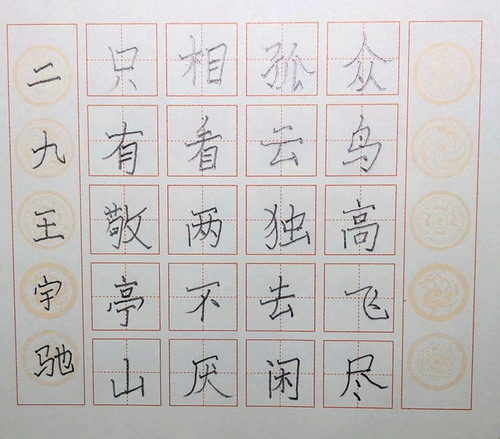 众鸟高飞尽
孤云独去闲
相看两不厌
只有敬亭山
二九王宇驰